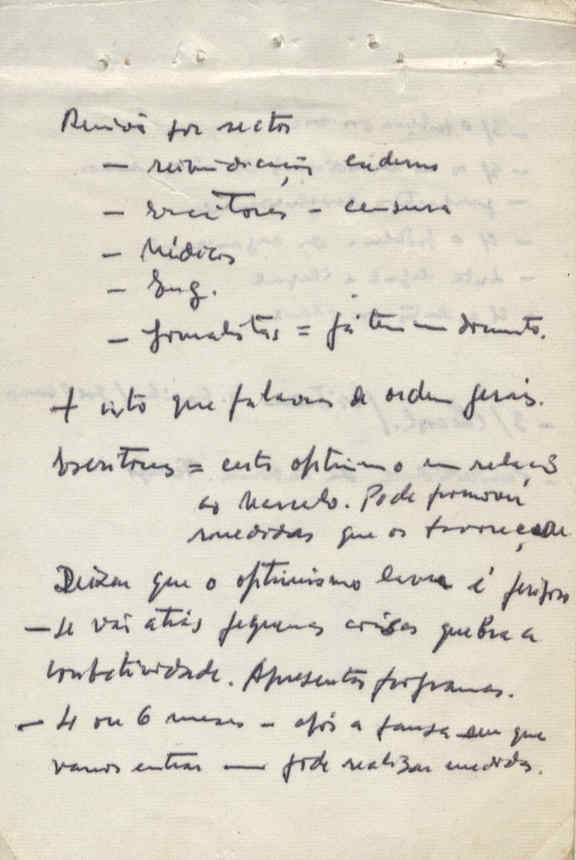 Reunião por sector
— reivindicações caderno
— Escritores – censura
— Médicos
— Eng.
— Jornalistas = já têm um docmto.
+ isto que palavras de ordem gerais.
Escritores = certo optimismo em relação
ao Marcelo. Pode promover
medidas que os favoreçam
Dizem que o optimismo leva é perigoso
— Se vai atrás pequenas coisas quebra a
combatividade. Apresentar programas.
— 4 ou 6 meses – após a pausa em que
vamos entrar — pode realizar medidas.